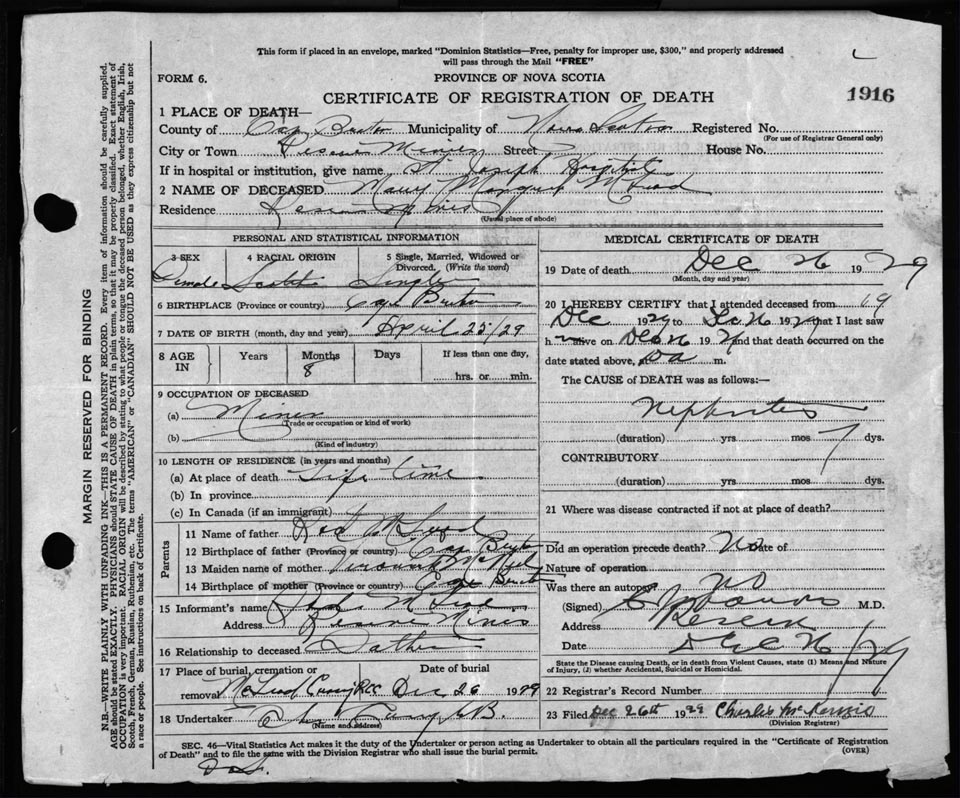 This form if placed in an envelope, marked "Dominion Statistics—Free, penalty for improper use, $300," and properly addressed
will pass through the Mail "FREE"
FORM 6.
PROVINCE OF NOVA SCOTIA
CERTIFICATE OF REGISTRATION OF DEATH
1916
1 PLACE OF DEATH—
County of Cape Breton Municipality of Nova Scotia Registered No.
(For use of Registrar General only)
City or Town Reserve Mines Street House No.
If in hospital or institution, give name St Joseph Hospital
2 NAME OF DECEASED Mary Margret McLeod
Residence Reserve Mines
(Usual place of abode)
PERSONAL AND STATISTICAL INFORMATION
3 SEX 4 RACIAL ORIGIN 5 Single, Married, Widowed or Divorced. (Write the word)
Female Scotch Single
6 BIRTHPLACE (Province or country) Cape Breton
7 DATE OF BIRTH (month, day and year) April 25/29
8 AGE IN Years Months Days If less than one day,
8 hrs. or min.
9 OCCUPATION OF DECEASED
(a) Miner
(Trade or occupation or kind of work)
(b)
(Kind of industry)
10 LENGTH OF RESIDENCE (in years and months)
(a) At place of death Life time
(b) In province
(c) In Canada (if an immigrant)
Parents
11 Name of father McLeod
12 Birthplace of father (Province or country) Cape Breton
13 Maiden name of mother McNeil
14 Birthplace of mother (Province or country) Cape Breton
15 Informant's name
Address Reserve Mines
16 Relationship to deceased Father
17 Place of burial, cremation or removal Date of burial
Dec 26 1929
18 Undertaker
(Name and address)
MEDICAL CERTIFICATE OF DEATH
19 Date of death Dec 26 1929
(Month, day and year)
20 I HEREBY CERTIFY that I attended deceased from 19
Dec 1929 to Dec 26 1929 that I last saw
h alive on Dec 26 1929 and that death occurred on the
date stated above, m.
The CAUSE of DEATH was as follows:—
Nephritis
(duration) yrs mos 7 dys.
CONTRIBUTORY
(duration) yrs. mos. dys.
21 Where was disease contracted if not at place of death?
Did an operation precede death? No Date of
Nature of operation
Was there an autopsy? No
(Signed) M.D.
Address Reserve
Date Dec 26/29
State the Disease causing Death, or in death from Violent Causes, state (1) Means and Nature
of Injury, (2) whether Accidental, Suicidal or Homicidal.
22 Registrar's Record Number
23 Filed Dec 26th 1929 Charles McKenzie
(Division Registrar)
SEC. 46—Vital Statistics Act makes it the duty of the Undertaker or person acting as Undertaker to obtain all the particulars required in the "Certificate of Registration
of Death" and to file the same with the Division Registrar who shall issue the burial permit.
(OVER)
MARGIN RESERVED FOR BINDING
N.B.—WRITE PLAINLY WITH UNFADING INK—THIS IS A PERMANENT RECORD. Every item of information should be carefully supplied.
AGE should be stated EXACTLY. PHYSICIANS should STATE CAUSE OF DEATH in plain terms, so that it may be properly classified. Exact statement of
OCCUPATION is very important. RACIAL ORIGIN will be described by stating to what people or tongue the deceased person belonged, whether English, Irish,
Scotch, French, German, Russian, Ruthenian, etc. The terms "AMERICAN" or "CANADIAN" SHOULD NOT BE USED as they express citizenship but not
a race or people. See instructions on back of Certificate.